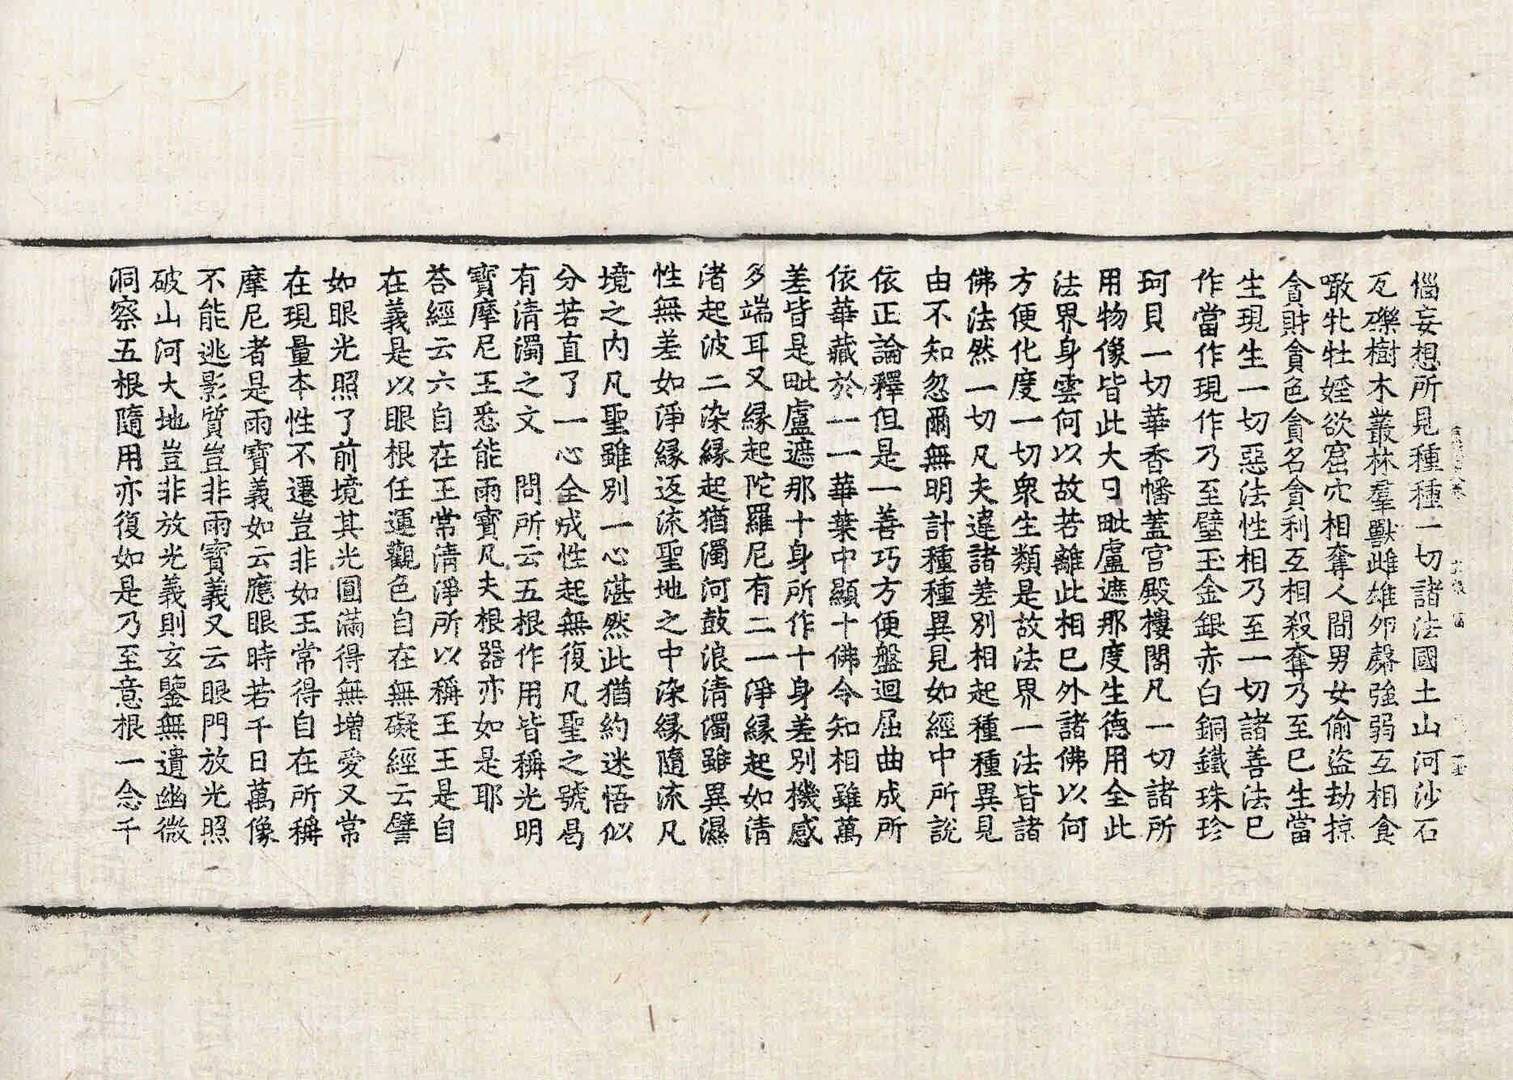 惱妄想所見種種一切諸法國土山河沙石
瓦礫樹木叢林羣獸雌雄卵㲉強弱互相食
噉牝牡婬欲窟穴相奪人間男女偷盜劫掠
貪財貪色貪名貪利互相殺奪乃至已生當
生現生一切惡法性相乃至一切諸善法已
作當作現作乃至璧玉金銀赤白銅鐵珠珍
珂貝一切華香幡蓋宮殿樓閣凡一切諸所
用物像皆此大日毗盧遮那度生德用全此
法界身雲何以故若離此相已外諸佛以何
方便化度一切衆生類是故法界一法皆諸
佛法然一切凡夫違諸差別相起種種異見
由不知忽爾無明計種種異見如經中所說
依正論釋但是一善巧方便盤迴屈曲成所
依華藏於一一華葉中顯十佛令知相雖萬
差皆是毗盧遮那十身所作十身差別機感
多端耳又緣起陀羅尼有二一淨緣起如清
渚起波二染緣起猶濁河鼓浪清濁雖異濕
性無差如淨緣返流聖地之中染緣隨流凡
境之內凡聖雖別一心湛然此猶約迷悟似
分若直了一心全成性起無復凡聖之號曷
有清濁之文　問所云五根作用皆稱光明
寶摩尼王悉能雨寶凡夫根器亦如是耶
荅經云六自在王常清淨所以稱王王是自
在義是以眼根任運觀色自在無礙經云譬
如眼光照了前境其光圓滿得無增愛又常
在現量本性不遷豈非如王常得自在所稱
摩尼者是雨寶義如云應眼時若千日萬像
不能逃影質豈非雨寶義又云眼門放光照
破山河大地豈非放光義則玄鑒無遺幽微
洞察五根隨用亦復如是乃至意根一念千